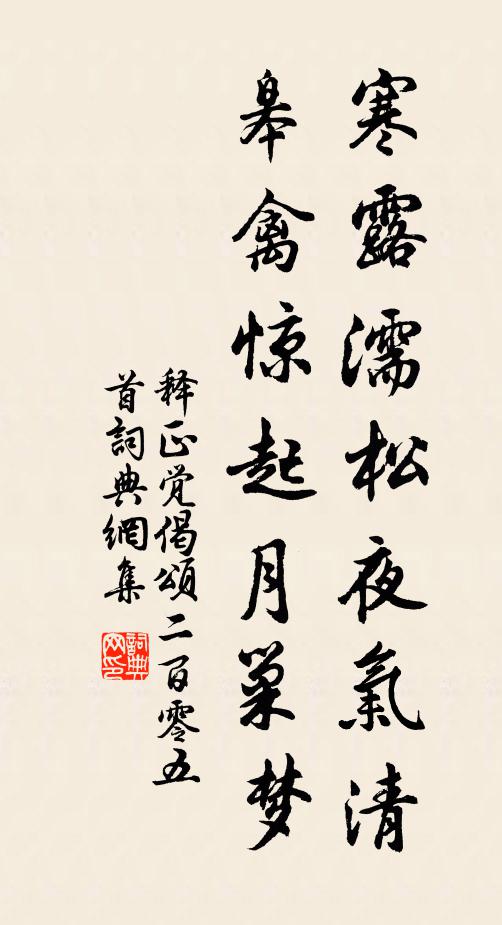 寒露濡松夜氣清
皋禽惊起月巢梦
释正觉偈頌二百零五
首詞典網集
詞典网印